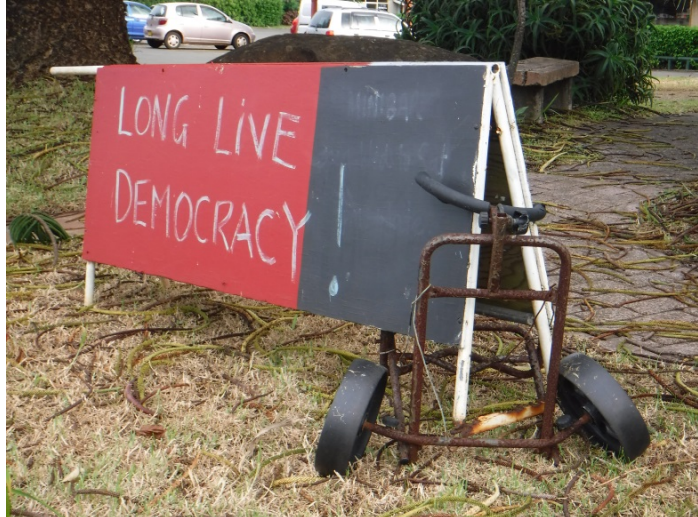 LONG LiVE
DEMOCRACY!